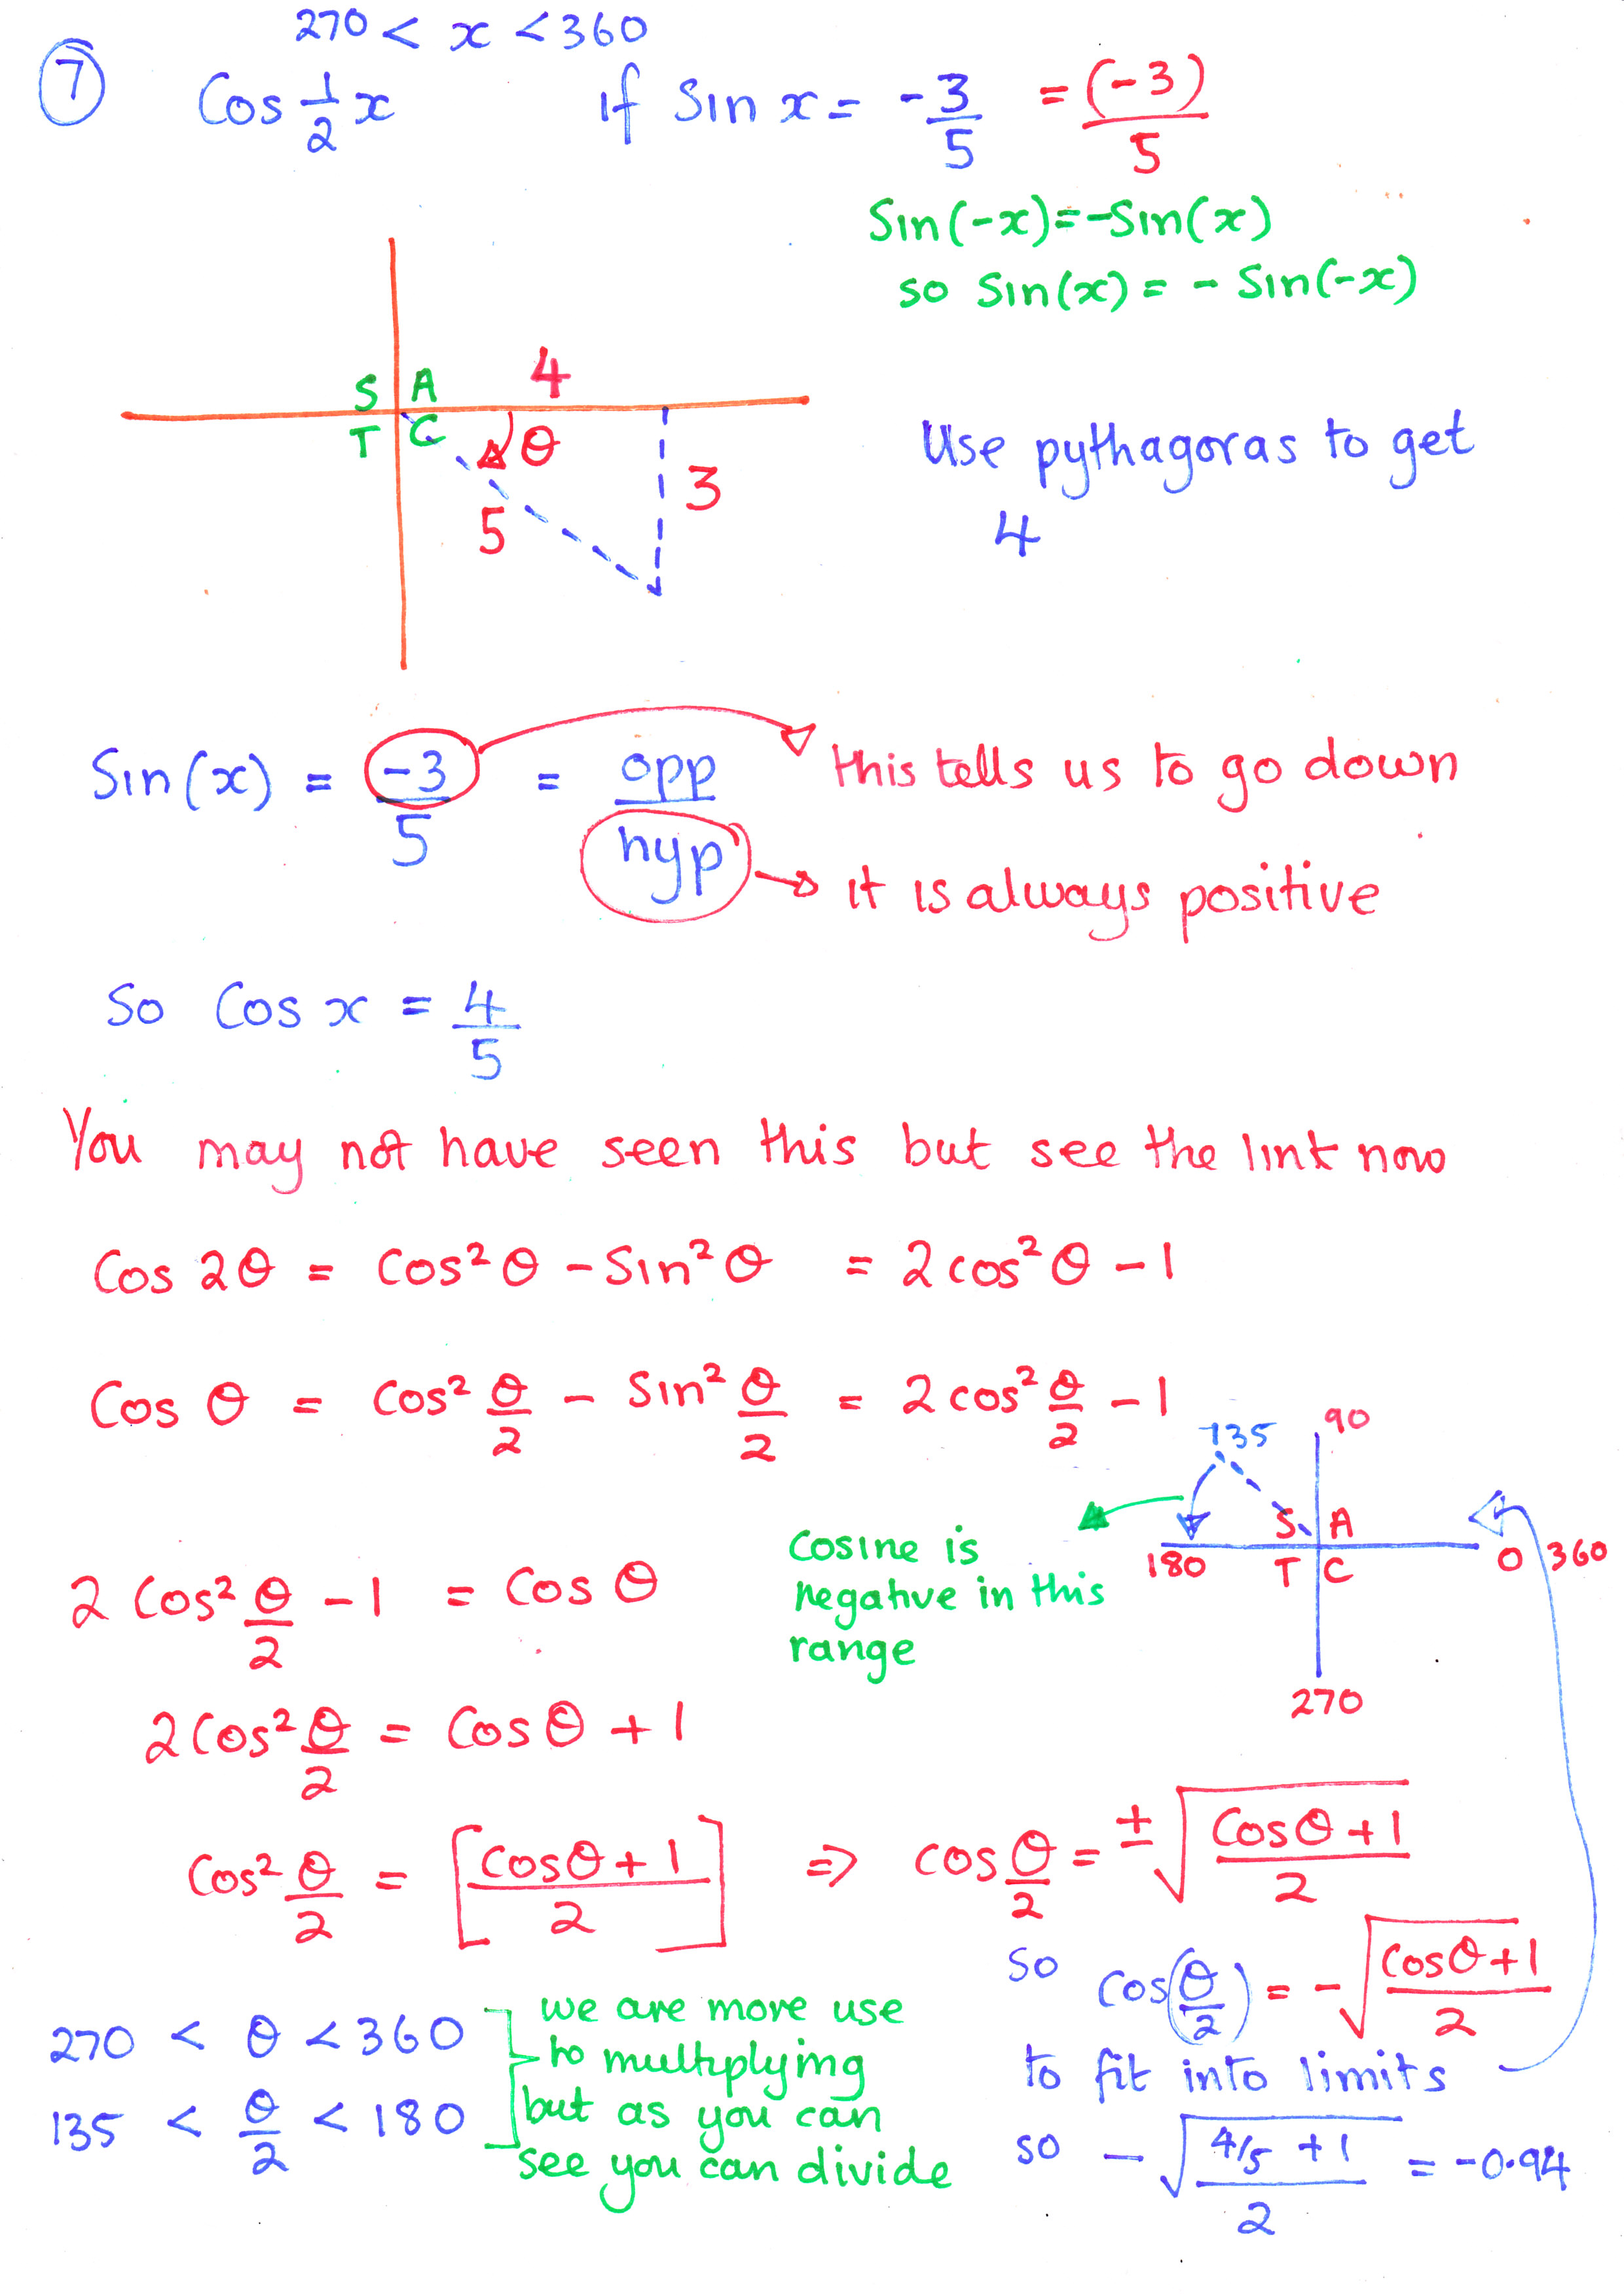 270 < x < 360
7 Cos 1/2 x if Sin x = -3/5 = (-3)/5
Sin(-x)=-Sin(x)
so Sin(x) = - Sin(-x)
S A 4
T C θ
5 3
Use pythagoras to get
4
Sin(x) = -3/5 = opp/hyp this tells us to go down
it is always positive
So Cos x = 4/5
You may not have seen this but see the link now
Cos 2θ = Cos²θ - Sin²θ = 2cos²θ - 1
Cos θ = Cos² θ/2 - Sin² θ/2 = 2cos² θ/2 - 1
135 90
S A
180 T C 0 360
270
Cosine is
negative in this
range
2 Cos² θ/2 - 1 = Cos θ
2Cos² θ/2 = Cosθ + 1
Cos² θ/2 = [Cosθ + 1 / 2] ⇒ Cos θ/2 = ±√(Cosθ+1 / 2)
So Cos(θ/2) = -√(Cosθ+1 / 2)
to fit into limits
so -√(4/5 + 1 / 2) = -0.94
270 < θ < 360
135 < θ/2 < 180
we are more use
to multiplying
but as you can
see you can divide